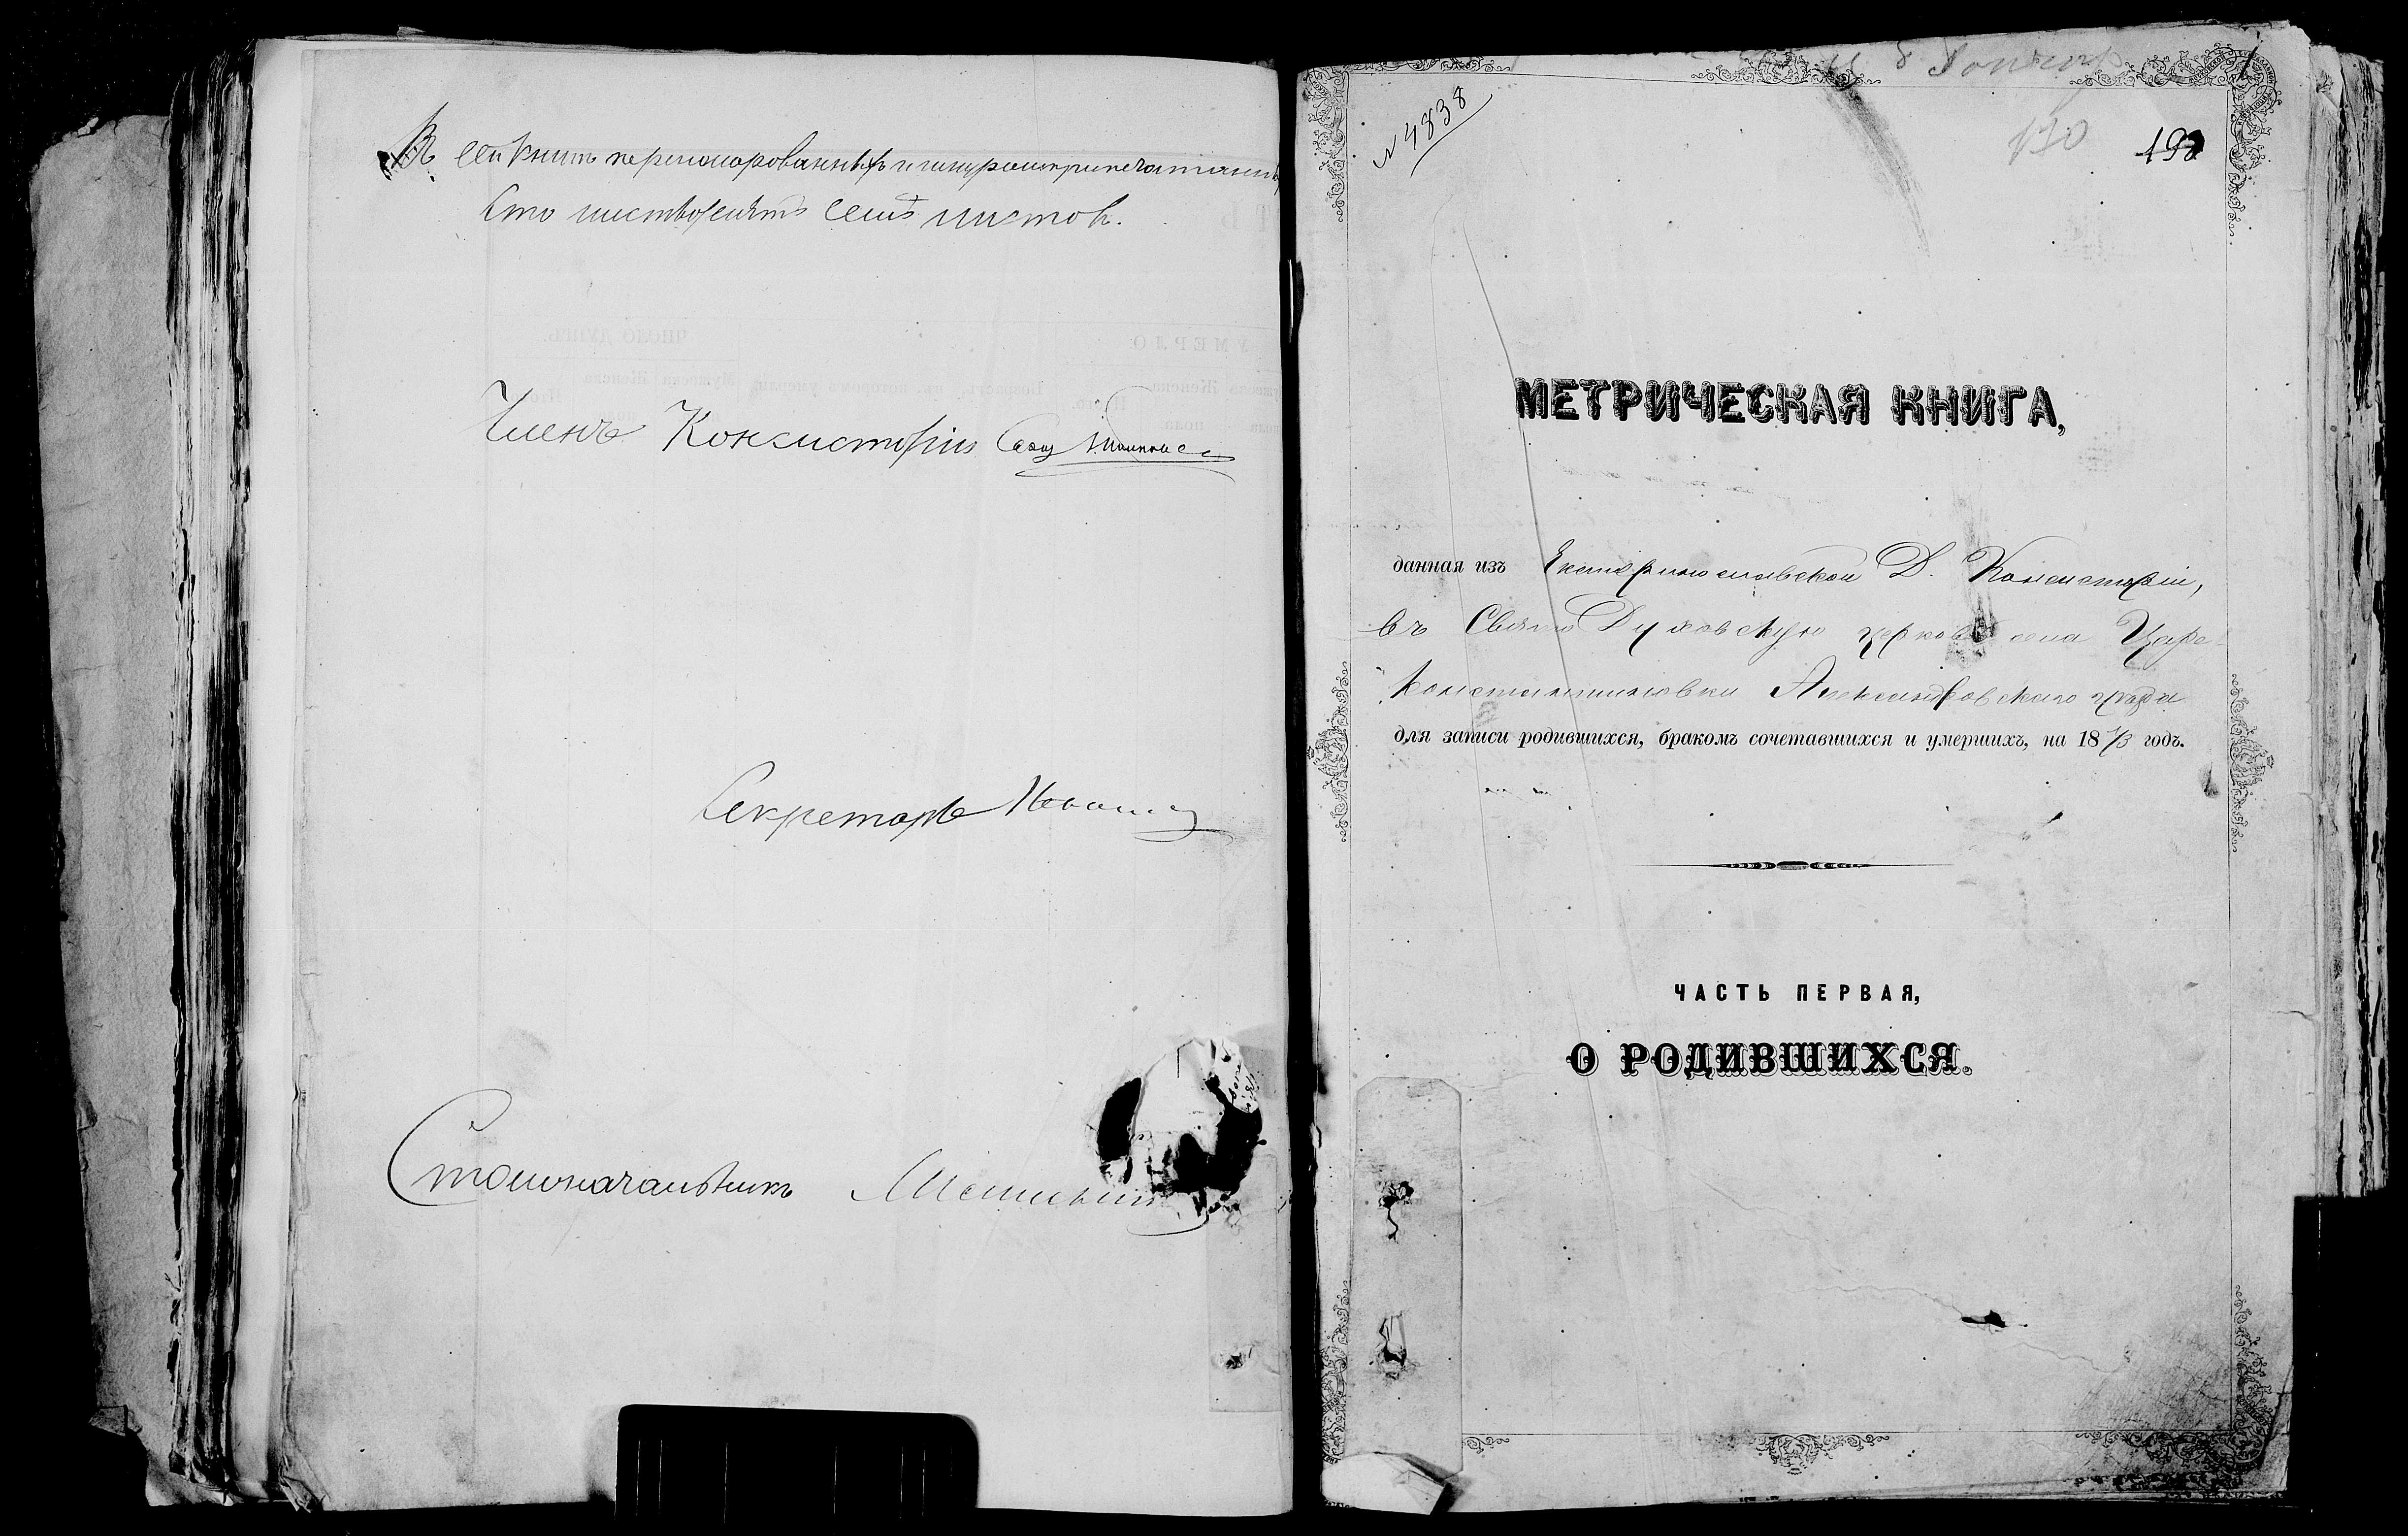 Въ сей книгѣ перенумерованныхъ и шнуромъ припечатанныхъ
сто шестьдесятъ семь листовъ.
Членъ Консисторіи Свящ.
Секретарь
Столоначальникъ
№ 4838
130
198
МЕТРИЧЕСКАЯ КНИГА,
данная изъ Екатеринославской Д. Консисторіи,
въ Свято Духовскую церковь села Царе
константиновки Александровскаго уѣзда
для записи родившихся, бракомъ сочетавшихся и умершихъ, на 1873 годъ.
ЧАСТЬ ПЕРВАЯ,
О РОДИВШИХСЯ.